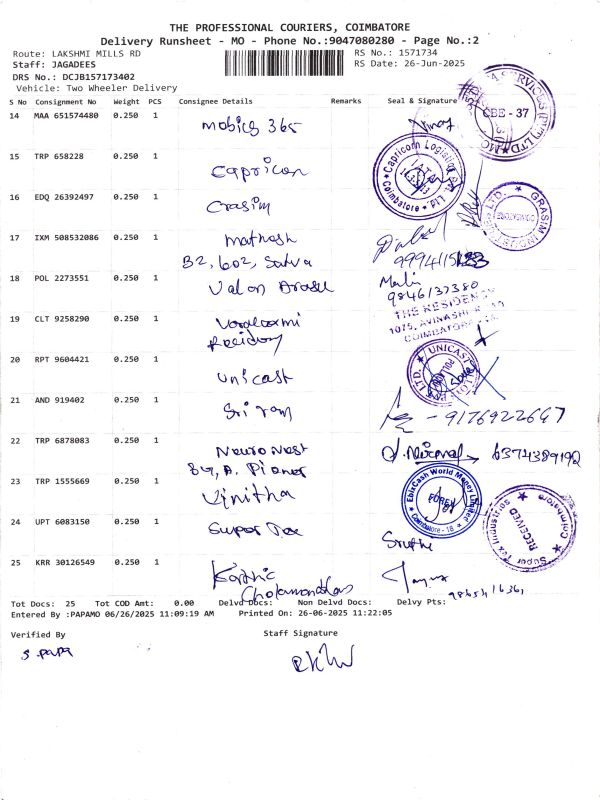 THE PROFESSIONAL COURIERS, COIMBATORE
Delivery Runsheet - MO - Phone No.:9047080280 - Page No.:2
Route: LAKSHMI MILLS RD
RS No.: 1571734
Staff: JAGADEES
RS Date: 26-Jun-2025
DRS No.: DCJB157173402
Vehicle: Two Wheeler Delivery
S No Consignment No Weight PCS Consignee Details Remarks Seal & Signature
14 MAA 651574480 0.250 1
mobicg 365
CBE - 37
15 TRP 658228 0.250 1
Capricon
Capricorn Logistics Ltd. Coimbatore
16 EDQ 26392497 0.250 1
Grasim
GRASIM INDUSTRIES LTD.
17 IXM 508532086 0.250 1
mathosh
B2, 602, Salva
18 POL 2273551 0.250 1
Valan Arasu
Mali
9846137380
THE RESIDENCY
1075, AVINASHI ROAD
COIMBATORE
19 CLT 9258290 0.250 1
Varalaxmi
Residency
20 RPT 9604421 0.250 1
Unicast
UNICAST
21 AND 919402 0.250 1
Sri ram
- 9176922667
22 TRP 6878083 0.250 1
Neuro Nest
6374389192
23 TRP 1555669 0.250 1
Vinitha
EbixCash World Money Limited
FOREX
Coimbatore - 18
24 UPT 6083150 0.250 1
Super Tex
Sruthi
Super Tex Industries
RECEIVED
Coimbatore
25 KRR 30126549 0.250 1
Karthic
Cholamandalam
Tot Docs: 25 Tot COD Amt: 0.00 Delvd Docs: Non Delvd Docs: Delvy Pts:
Entered By :PAPAMO 06/26/2025 11:09:19 AM Printed On: 26-06-2025 11:22:05
Verified By
Staff Signature
S. PAPA